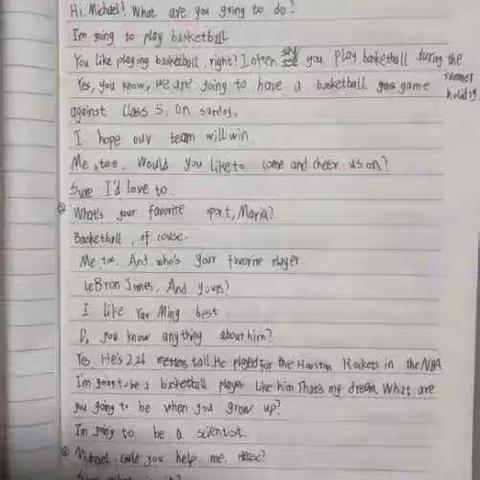 Hi, Michael! What are you going to do?
I'm going to play basketball
You like playing basketball, right? I often see you play basketball during the summer holiday.
Yes, you know, we are going to have a basketball game
against Class 5. on sunday.
I hope our team will win.
Me, too. Would you like to come and cheer us on?
Sure I'd love to.
What's your favorite sport, Maria?
Basketball, of couse.
Me, too. And who's your favorite player
LeBron James. And yours?
I like Yao Ming best
Do you know anything about him?
Yes. He's 2.26 meters tall. He played for the Houston Rockets in the NBA
I'm going to be a basketball player like him That's my dream. What are
you going to be when you grow up?
I'm going to be a scientist.
Michael, could you help me, please?